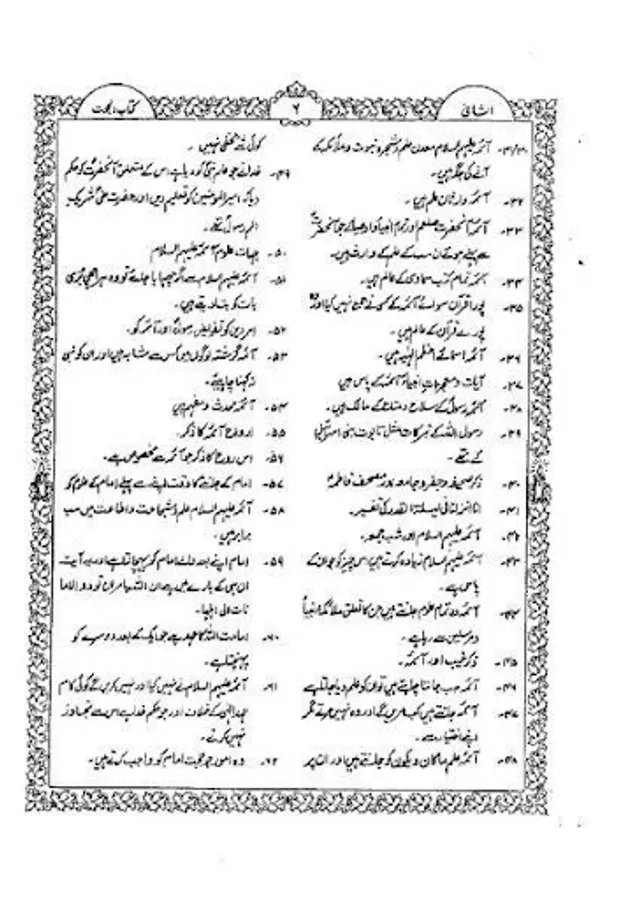 الشافی
۶
کتاب الحجت
۳۰/۳۱۔ آئمہ علیہم السلام معدن علم و شجرہ نبوت و ملائکہ کے
آنے کی جگہ ہیں۔
۳۲۔ آئمہ وارثان علم ہیں۔
۳۳۔ آئمہ آنحضرت صلعم اور تمام انبیاؑ و اوصیاؑ جو آنحضرتؐ
سے پہلے ہوئے ان سب کے علم کے وارث ہیں۔
۳۴۔ آئمہ تمام کتب سماوی کے عالم ہیں۔
۳۵۔ پورا قرآن سوائے آئمہ کے کسی نے جمع نہیں کیا اور وہ
پورے قرآن کے عالم ہیں۔
۳۶۔ آئمہ اسمائے اعظم الہیہ ہیں۔
۳۷۔ آیات و معجزات انبیاؑ آئمہ کے پاس ہیں
۳۸۔ آئمہ رسولؐ کے سلاح و متاع کے مالک ہیں۔
۳۹۔ رسول اللہ کے تبرکات مثل تابوت بنی اسرائیل
کے تھے۔
۴۰۔ ذکر صحیفہ و جفر و جامعہ اور مصحف فاطمہؑ
۴۱۔ انا انزلناہ فی لیلۃ القدر کی تفسیر۔
۴۲۔ آئمہ علیہم السلام اور شب جمعہ۔
۴۳۔ آئمہ علیہم السلام زیادہ کرتے ہیں اس چیز کو جو ان کے
پاس ہے۔
۴۴۔ آئمہ وہ تمام علوم جانتے ہیں جن کا تعلق ملائکہ انبیاؑ
و مرسلین سے رہا ہے۔
۴۵۔ ذکر غیب اور آئمہ۔
۴۶۔ آئمہ جب جاننا چاہتے ہیں تو ان کو علم دیا جاتا ہے
۴۷۔ آئمہ جانتے ہیں کب مریں گے اور وہ نہیں مرتے مگر
اپنے اختیار سے۔
۴۸۔ آئمہ علم ماکان و یکون کو جانتے ہیں اور ان پر
کوئی شے مخفی نہیں۔
۴۹۔ خدا نے جو علم نبی کو دیا ہے اس کے متعلق آنحضرتؐ کو حکم
دیا کہ امیر المومنین کو تعلیم دیں اور حضرت علیؑ شریک
علم رسول تھے۔
۵۰۔ جہات علوم آئمہ علیہم السلام
۵۱۔ آئمہ علیہم السلام سے اگر چھپایا جائے تو وہ ہر اچھی بُری
بات کو بتا دیتے ہیں۔
۵۲۔ امر دین کو تفویض رسولؐ اور آئمہ کو۔
۵۳۔ آئمہ گزشتہ لوگوں میں کس سے مشابہ ہیں اور ان کو نبی
نہ کہنا چاہیئے۔
۵۴۔ آئمہ محدث و مفہم ہیں
۵۵۔ ارواح آئمہ کا ذکر۔
۵۶۔ اس روح کا ذکر جو آئمہ سے مخصوص ہے۔
۵۷۔ امام کے جاننے کا وقت اپنے سے پہلے امام کے علوم کو
۵۸۔ آئمہ علیہم السلام علم و شجاعت و اطاعت میں سب
برابر ہیں۔
۵۹۔ امام اپنے بعد والے امام کو پہچانتا ہے اور یہ آیت
ان ہی کے بارے میں ہے ان اللہ یامرکم ان تودوا الاما
نات الی اہلہا۔
۶۰۔ امامت اللہ کا عہد ہے جو ایک کے بعد دوسرے کو
پہنچتا ہے۔
۶۱۔ آئمہ علیہم السلام نے نہیں کیا اور نہیں کریں گے کوئی کام
عہد الہی کے خلاف اور جو حکم خدا ہے اس سے تجاوز
نہیں کرتے۔
۶۲۔ وہ امور جو حجت امام کو واجب کرتے ہیں۔